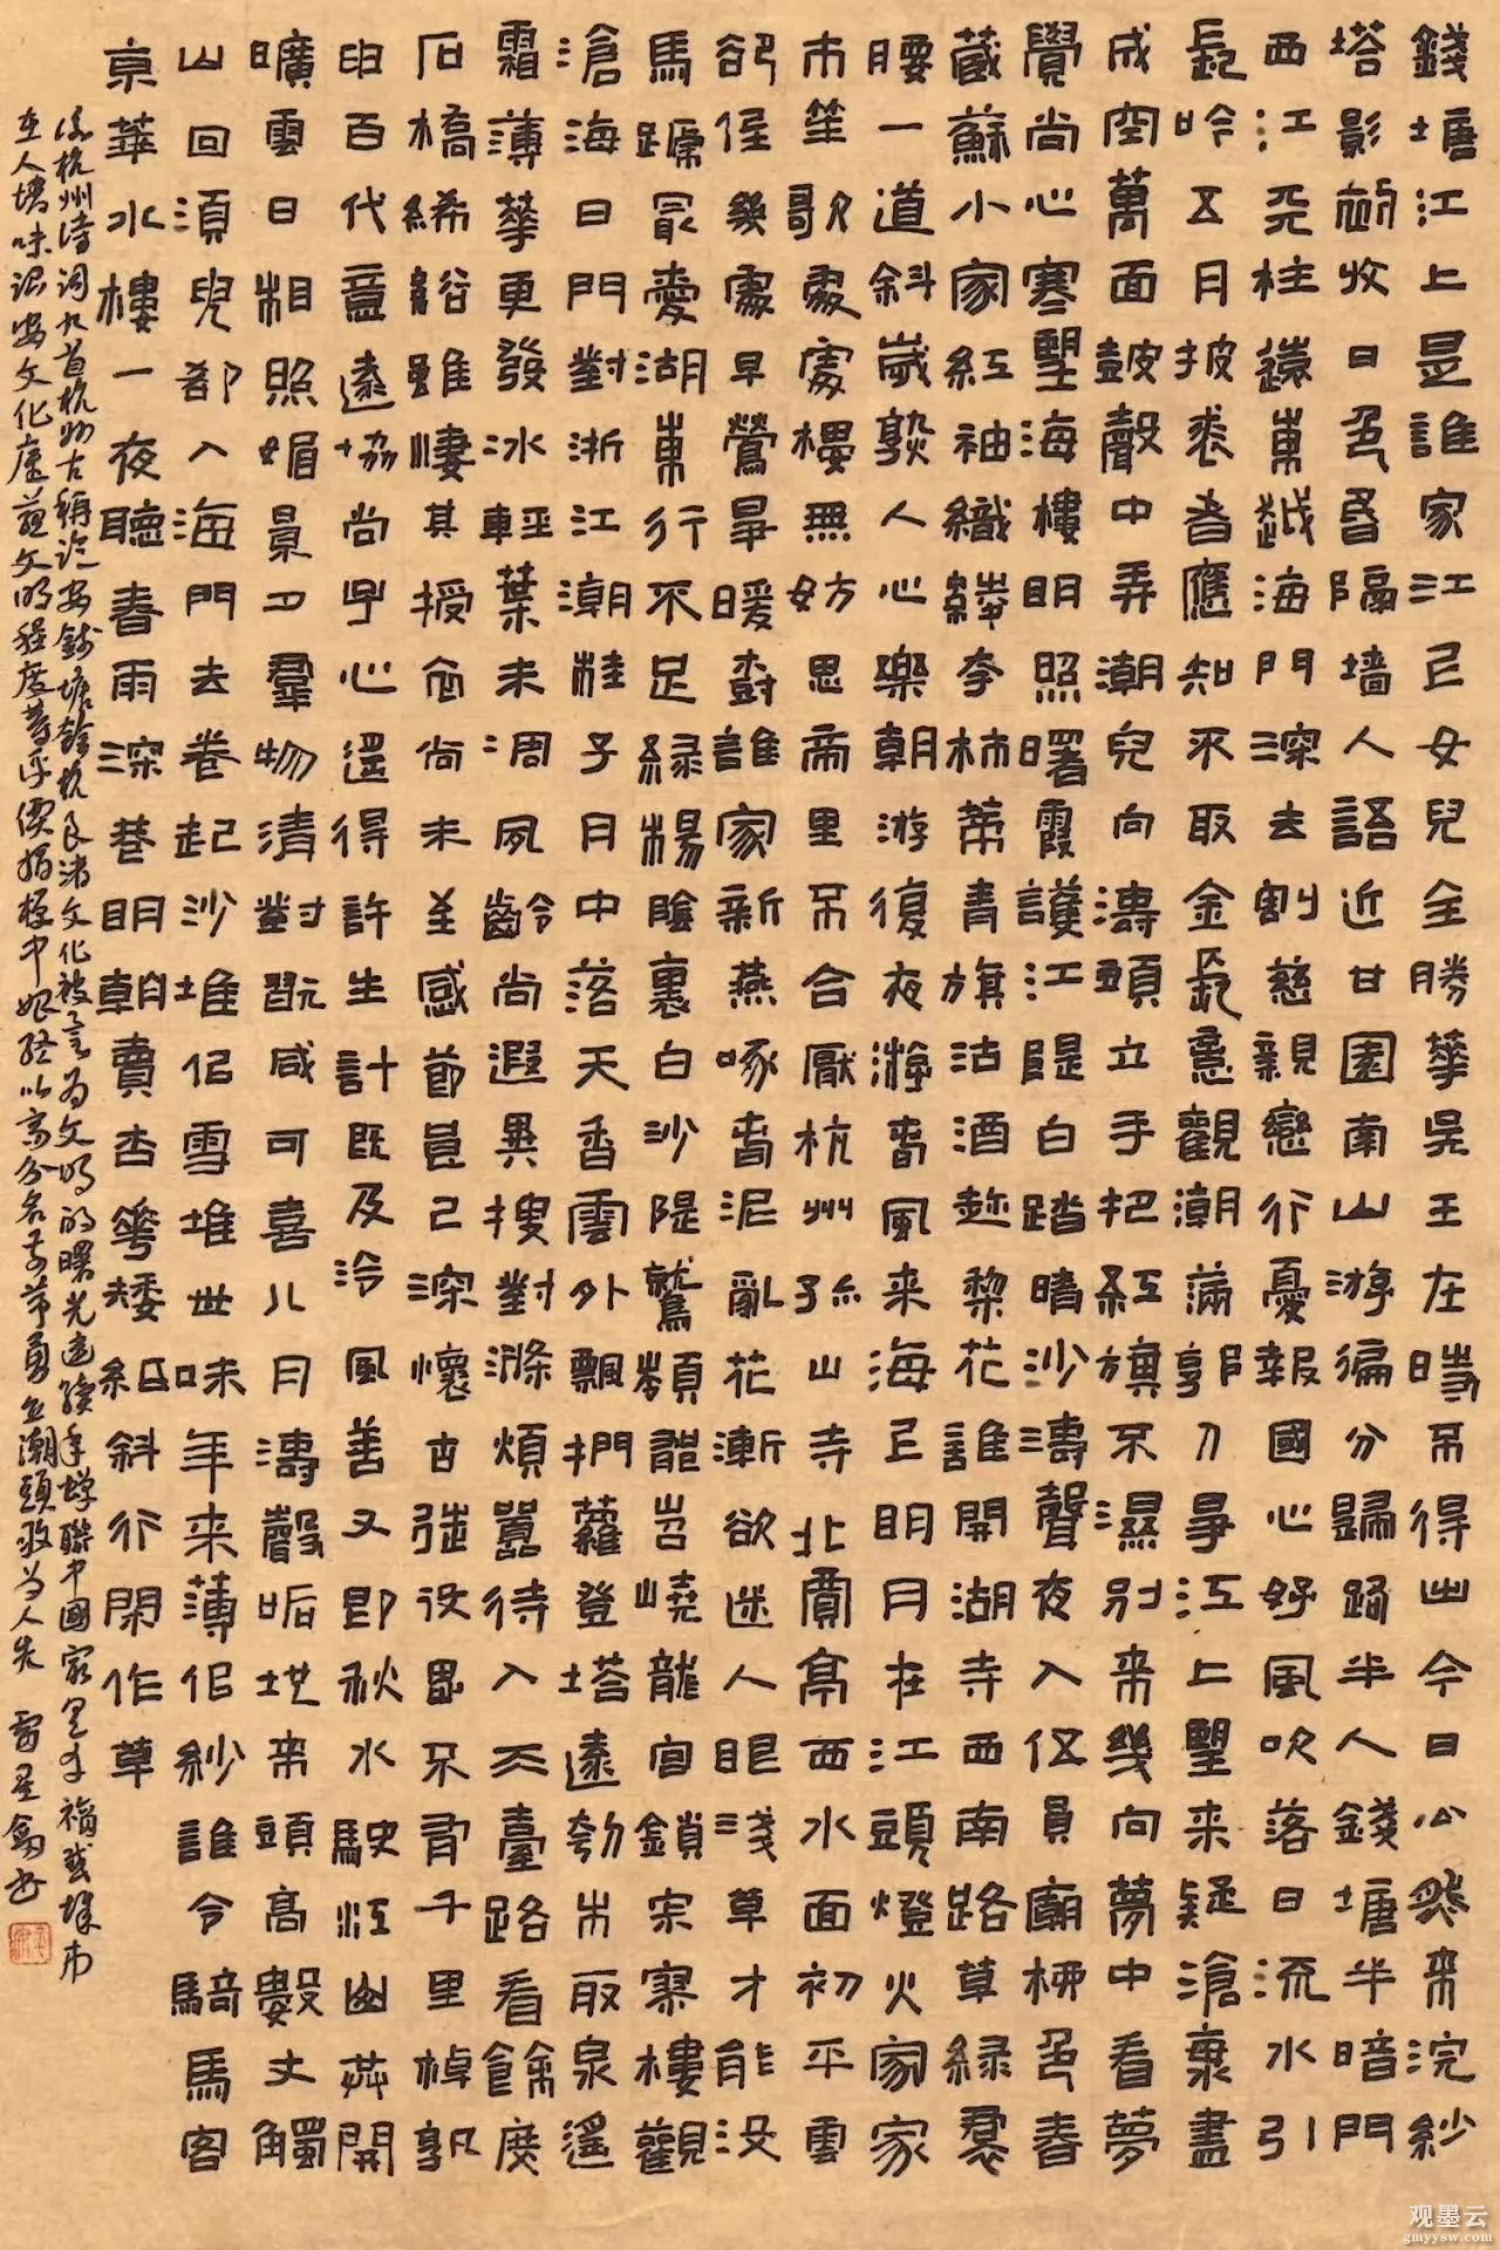 錢塘江上是誰家江上女兒全勝華吳王在時不得出今日公然來浣紗
塔影初收日色昏隔墻人語近甘園南山游徧分歸路半入錢塘半暗門
西江天柱遠東越海門深去割慈親戀行憂報國心好風吹落日流水引
長吟五月披裘者應知不取金長憶觀潮滿郭人爭江上望來疑滄海盡
成空萬面鼓聲中弄潮兒向濤頭立手把紅旗不濕別來幾向夢中看夢
覺尚心寒望海樓明照曙霞護江隄白踏晴沙濤聲夜入伍員廟柳色春
藏蘇小家紅袖織綾李柿蒂青旗沽酒趁梨花誰開湖寺西南路草綠裙
腰一道斜歲熟人心樂朝游復夜游春風來海上明月在江頭燈火家家
市笙歌處處樓無妨思帝里不合厭杭州孤山寺北賈亭西水面初平雲
卻低幾處早鶯爭暖樹誰家新燕啄春泥亂花漸欲迷人眼淺草才能沒
馬蹏最愛湖東行不足綠楊陰裏白沙隄鷲嶺龍岧嶢龍宮鎖寂寥樓觀
滄海日門對浙江潮桂子月中落天香雲外飄捫蘿登塔遠刳木取泉遙
霜薄華更發冰輕葉未凋夙齡尚遐異搜對滌煩囂待入天臺路看餘度
石橋絺綌雖悽其授衣尚未至感節良已深懷古徒役思不有千里棹孰
申百代意遠協尚子心遥得許生計既及泠風善又即秋水駛江山共開
曠雲日相照媚景夕羣物清對翫咸可喜八月濤聲吼地來頭高數丈觸
山回須臾卻入海門去卷起沙堆似雪堆世味年來薄似紗誰令騎馬客
京華水樓一夜聽春雨深巷明朝賣杏花矮紙斜行閑作草
杭州詩詞九首杭州古稱臨安錢塘餘杭良渚文化被言為文明的曙光連續蟬聯中國
在人文化文明程度等評價指標中以高分名列前茅勇立潮頭敢為人先